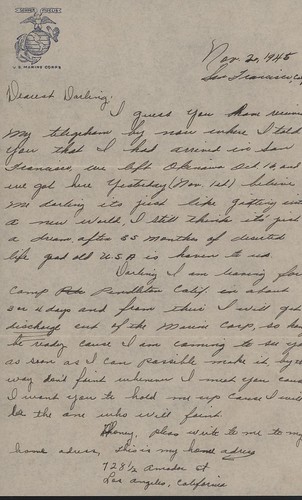 SEMPER FIDELIS
U.S. MARINE CORPS
Nov. 2, 1945
San Francisco
Dearest Darling:
I guess you have
my telegram by now where I told
you that I had arrived in San
Francisco, we left Okinawa Oct 16, and
we got here yesterday (Nov. 1st) believe
me darling its just like getting into
a new world, I still think its just
a dream, after 25 months of
life good old U.S.A is heaven to us.
Darling I am leaving for
Camp Pendleton Calif. in about
3 or 4 days and from their I will get
discharge out of the Marine Corp, so
be ready cause I am coming to see you
as soon as I can possible make it by
way don't faint whenever I meet you cause
I want you to hold me up cause I will
be the one who will faint.
Honey, pleas write to me to my
home adress, this is my home adress
728 1/2 Amador St
Los Angeles, California